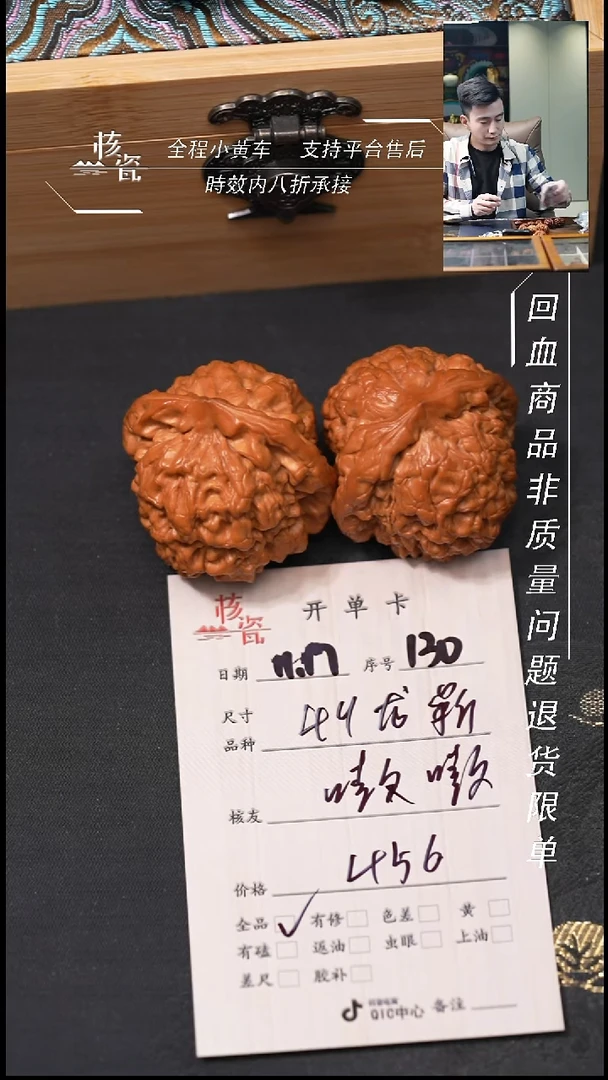 核瓷
全程小黄车 支持平台售后
時效内八折承接
回血商品非质量问题退货限单
核瓷 开单卡
日期 11.17 序号 130
尺寸
品种 44
核友 嗷嗷
价格 456
全品 ✓ 有修 色差 黄
有磕 返油 虫眼 上油
差尺 胶补
QIC中心 备注